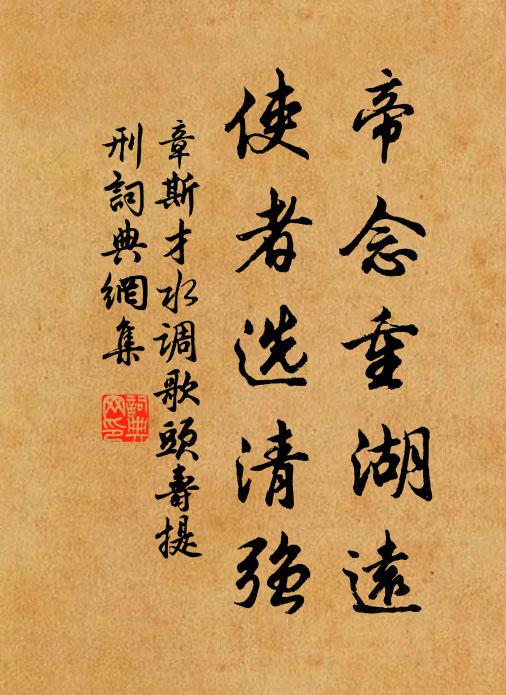 帝念重湖遠
使者选清强
章斯才水调歌頭壽提
刑詞典網集
詞典
网印